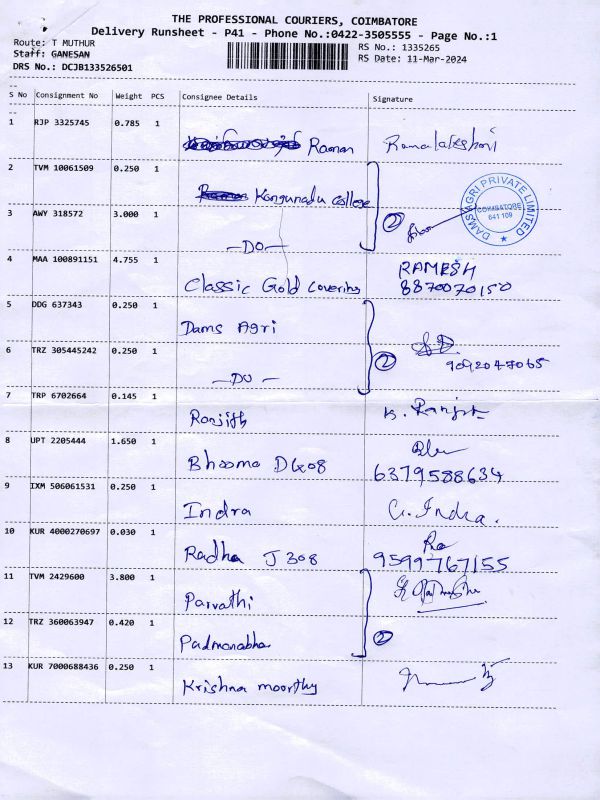 THE PROFESSIONAL COURIERS, COIMBATORE
Delivery Runsheet - P41 - Phone No.:0422-3505555 - Page No.:1
Route: T MUTHUR
RS No.: 1335265
Staff: GANESAN
RS Date: 11-Mar-2024
DRS No.: DCJB133526501
S No Consignment No Weight PCS Consignee Details Signature
1 RJP 3325745 0.785 1
Raman Ramalakshmi
2 TVM 10061509 0.250 1
Kongunadu college
3 AWY 318572 3.000 1
②
DAMS AGRI PRIVATE LIMITED
COIMBATORE
641 109
—DO—
4 MAA 100891151 4.755 1
RAMESH
Classic Gold covering 8870070150
5 DDG 637343 0.250 1
Dams Agri
6 TRZ 305445242 0.250 1
② 9092047065
—DO—
7 TRP 6702664 0.145 1
Ranjith K. Ranjit
8 UPT 2205444 1.650 1
Bhooma DG08 6379588634
9 IXM 506061531 0.250 1
Indra G. Indra.
10 KUR 4000270697 0.030 1
Radha J 308 9599767155
11 TVM 2429600 3.800 1
Parvathi
12 TRZ 360063947 0.420 1
Padmanabha ②
13 KUR 7000688436 0.250 1
Krishna moorthy